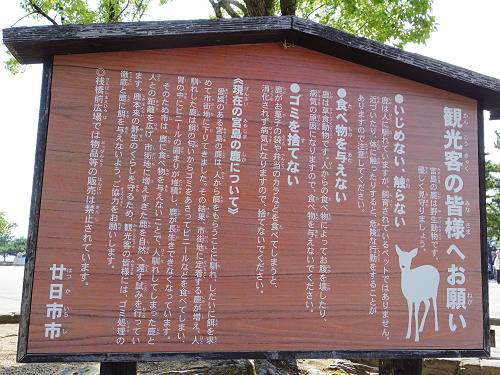 観光客の皆様へお願い
宮島の鹿は野生動物です。
優しく見守りましょう。
●いじめない 触らない
鹿は人に馴れていますが、飼育されているペットではありません。
近づいたり、体に触ったりすると、危険な行動をすることが
ありますので注意してください。
●食べ物を与えない
鹿は草食動物です。人からの食べ物によってお腹を壊したり、
病気の原因になりますので、食べ物を与えないでください。
●ゴミを捨てない
鹿がお菓子の袋や弁当のカラなどを食べてしまうと、
消化されず病気になりますので、捨てないでください。
《現在の宮島の鹿について》
愛嬌のある宮島の鹿は、人から餌をもらうことに馴れ、しだいに餌を求
めて市街地に下りてきました。その結果、市街地に定着する鹿が増え、人
馴れした鹿は餌の匂いからゴミをあさってビニールなどを食べてしまい、
胃の中にビニールの固まりが堆積し、鹿が長生きできなくなっています。
そのため市は、鹿に食べ物を与えないことで、人馴れしてしまった鹿と
人との距離を広げ、市街地に増えすぎた鹿を自然へ還す試みを行ってい
ます。鹿本来の野生のくらしを守るため、観光客の皆様には、ゴミ処理の
徹底と鹿に餌を与えないよう、ご協力をお願いします。
◎桟橋前広場では物品等の販売は禁止されています。
廿日市市